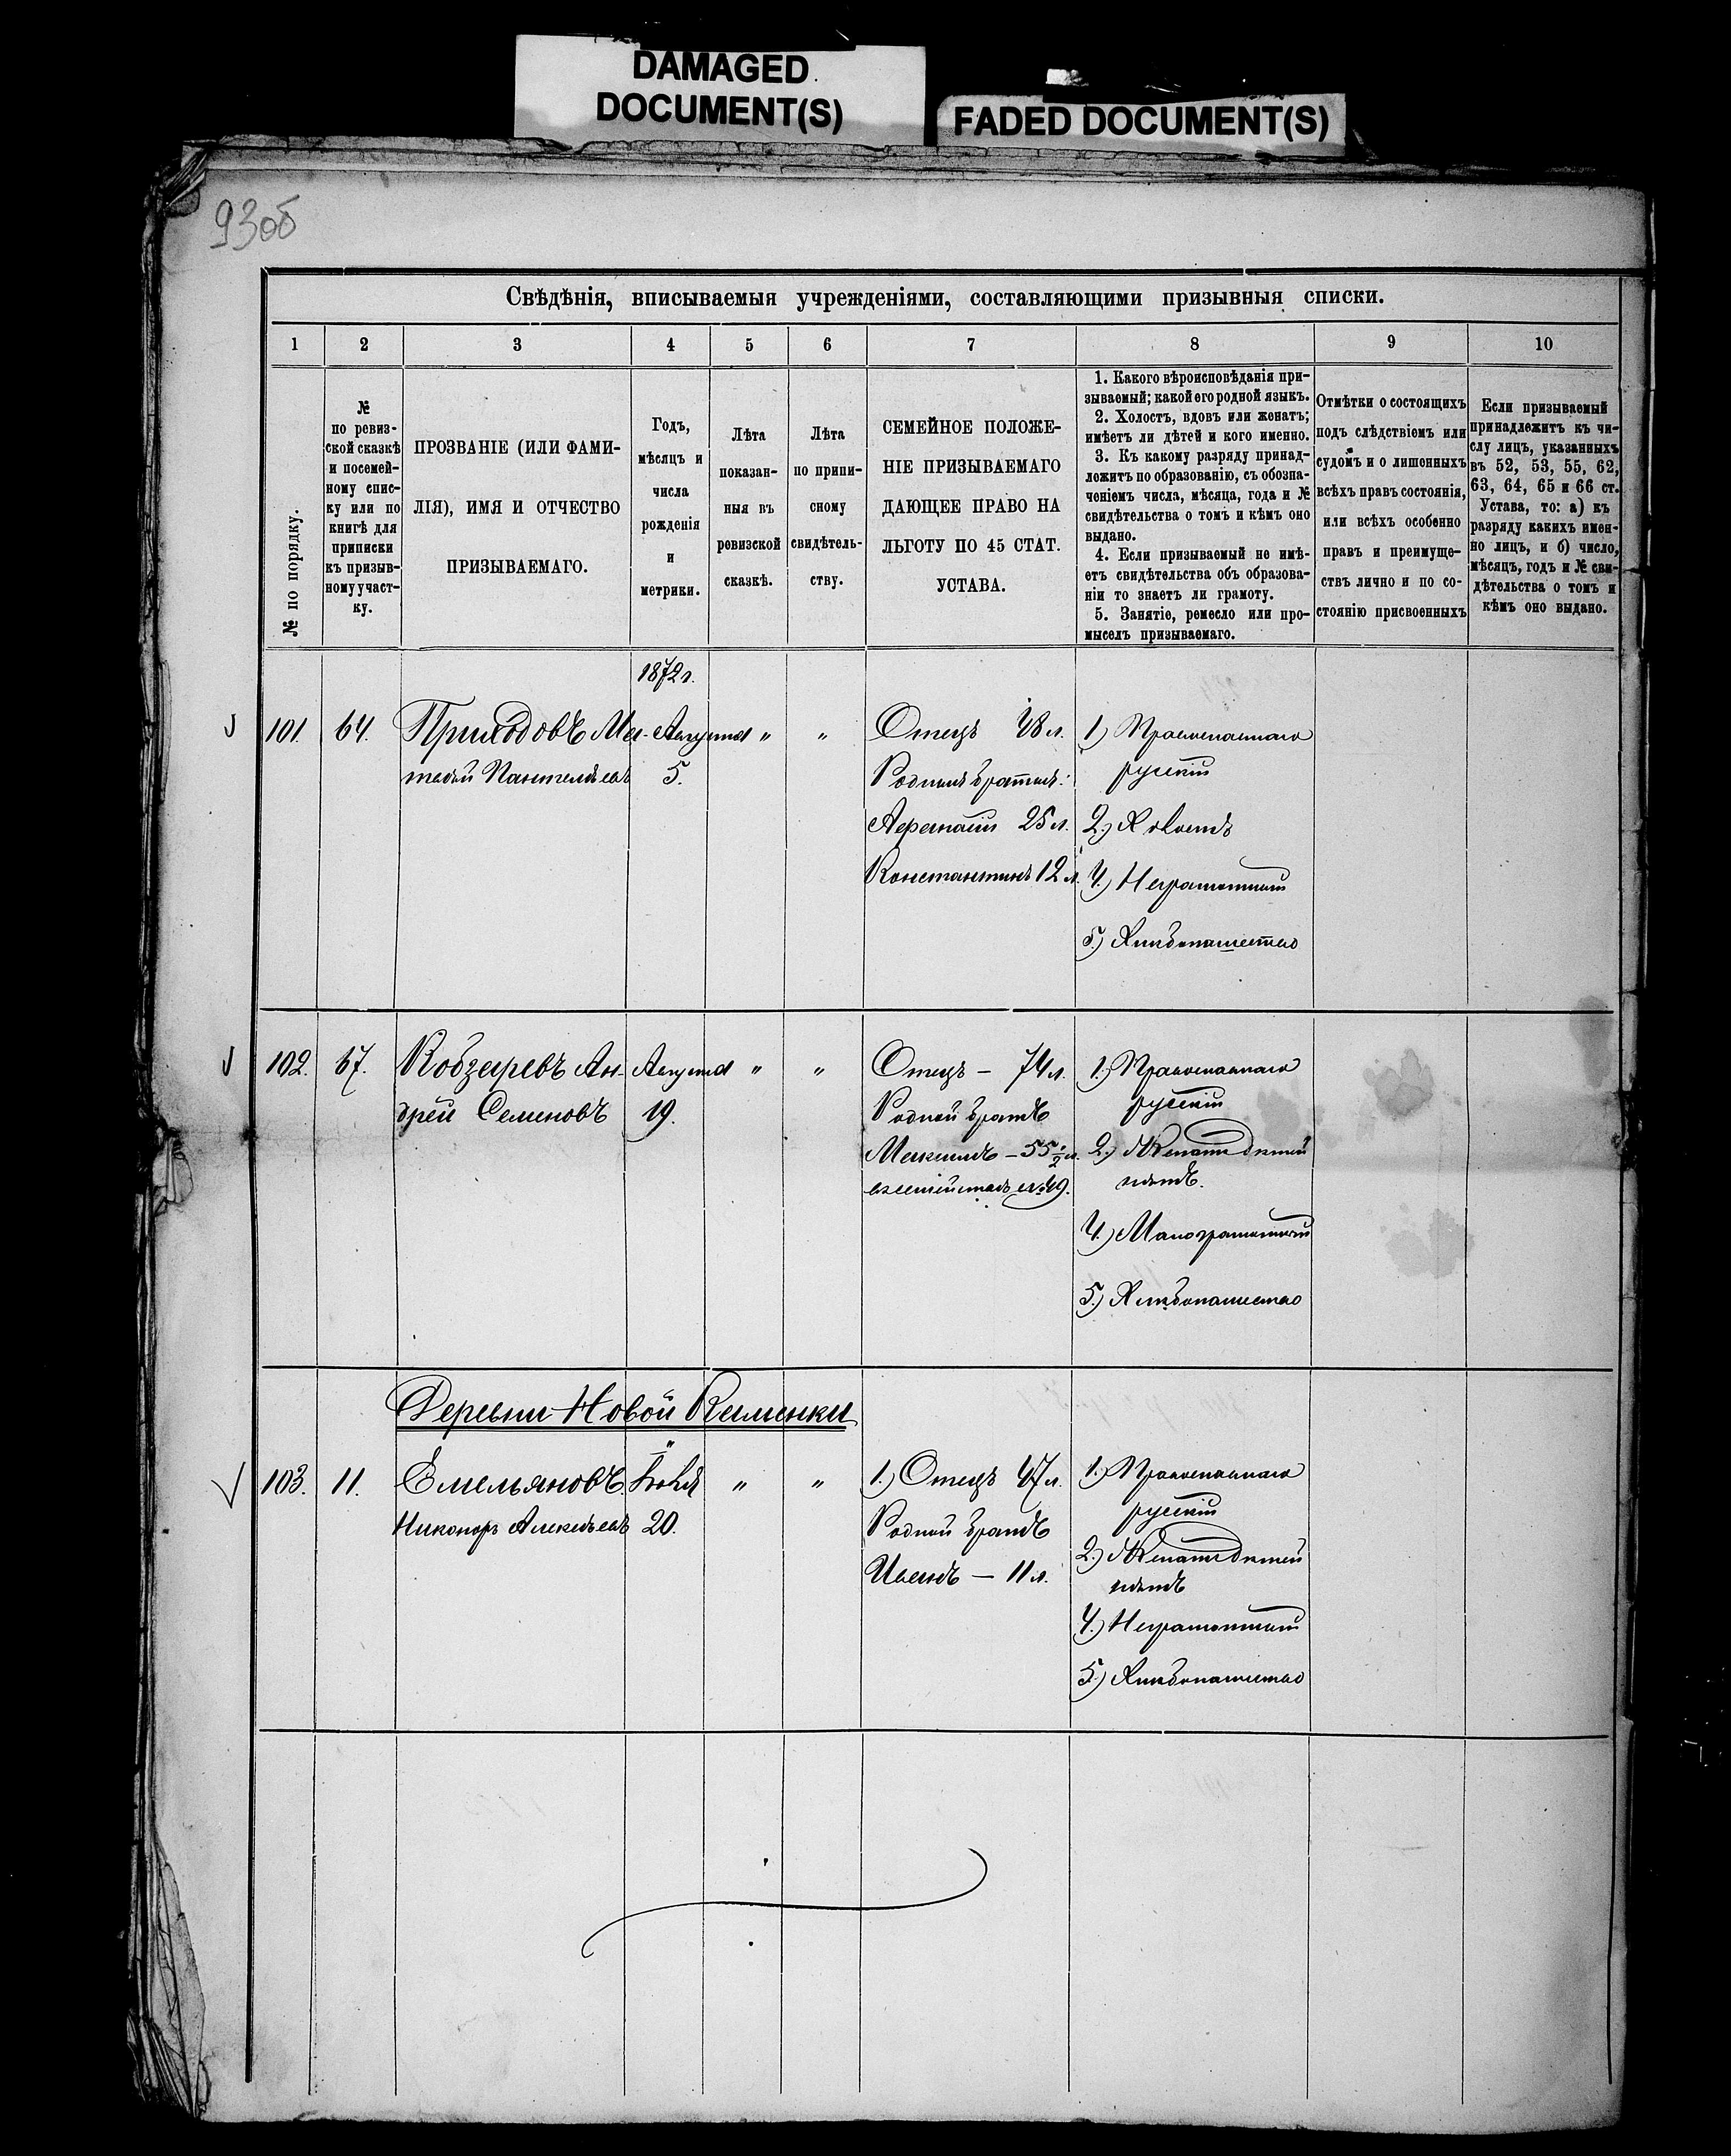 DAMAGED
DOCUMENT(S)
FADED DOCUMENT(S)
93об
Свѣдѣнія, вписываемыя учрежденіями, составляющими призывныя списки.
1
2
3
4
5
6
7
8
9
10
№ по порядку.
№
по ревиз-
ской сказкѣ
и посемей-
ному спис-
ку или по
книгѣ для
приписки
къ призыв-
ному участ-
ку.
ПРОЗВАНІЕ (ИЛИ ФАМИ-
ЛІЯ), ИМЯ И ОТЧЕСТВО
ПРИЗЫВАЕМАГО.
Годъ,
мѣсяцъ и
числа
рожденія
и
метрики.
Лѣта
показан-
ныя въ
ревизской
сказкѣ.
Лѣта
по припи-
сному
свидѣтель-
ству.
СЕМЕЙНОЕ ПОЛОЖЕ-
НІЕ ПРИЗЫВАЕМАГО
ДАЮЩЕЕ ПРАВО НА
ЛЬГОТУ ПО 45 СТАТ.
УСТАВА.
1. Какого вѣроисповѣданія при-
зываемый; какой его родной языкъ.
2. Холостъ, вдовъ или женатъ;
имѣетъ ли дѣтей и кого именно.
3. Къ какому разряду принад-
лежитъ по образованію, съ обозна-
ченіемъ числа, мѣсяца, года и №
свидѣтельства о томъ и кѣмъ оно
выдано.
4. Если призываемый не имѣ-
етъ свидѣтельства объ образова-
ніи то знаетъ ли грамоту.
5. Занятіе, ремесло или про-
мыселъ призываемаго.
Отмѣтки о состоящихъ
подъ слѣдствіемъ или
судомъ и о лишенныхъ
всѣхъ правъ состоянія,
или всѣхъ особенно
правъ и преимуще-
ствъ лично и по со-
стоянію присвоенныхъ
Если призываемый
принадлежитъ къ чи-
слу лицъ, указанныхъ
въ 52, 53, 55, 62,
63, 64, 65 и 66 ст.
Устава, то: а) къ
разряду какихъ имен-
но лицъ, и б) число,
мѣсяцъ, годъ и № сви-
дѣтельства о томъ и
кѣмъ оно выдано.
1872 г.
101. 64. Приходовъ Ма- Августа " " Отецъ 48 л. 1) Православнаго
твѣй Пантелѣевъ 5. Родныхъ братьевъ: русскій
25 л. 2) Холостъ
Константинъ 12 л. 4) Неграмотный
5) Хлѣбопашество
102. 67. Кобзаревъ Ан- Августа " " Отецъ – 74 л. 1) Православнаго
дрей Семеновъ 19. Родной братъ русскій
Максимъ – 55 1/2 л. 2) Женатъ дѣтей
нѣтъ.
4) Малограмотный
5) Хлѣбопашество
Деревни Новой Каменки
103. 11. Емельяновъ Іюля " " 1.) Отецъ 47 л. 1) Православнаго
Никоноръ Алексѣевъ 20. Родной братъ русскій
Иванъ – 11 л. 2) Женатъ дѣтей
нѣтъ
4) Неграмотный
5) Хлѣбопашество